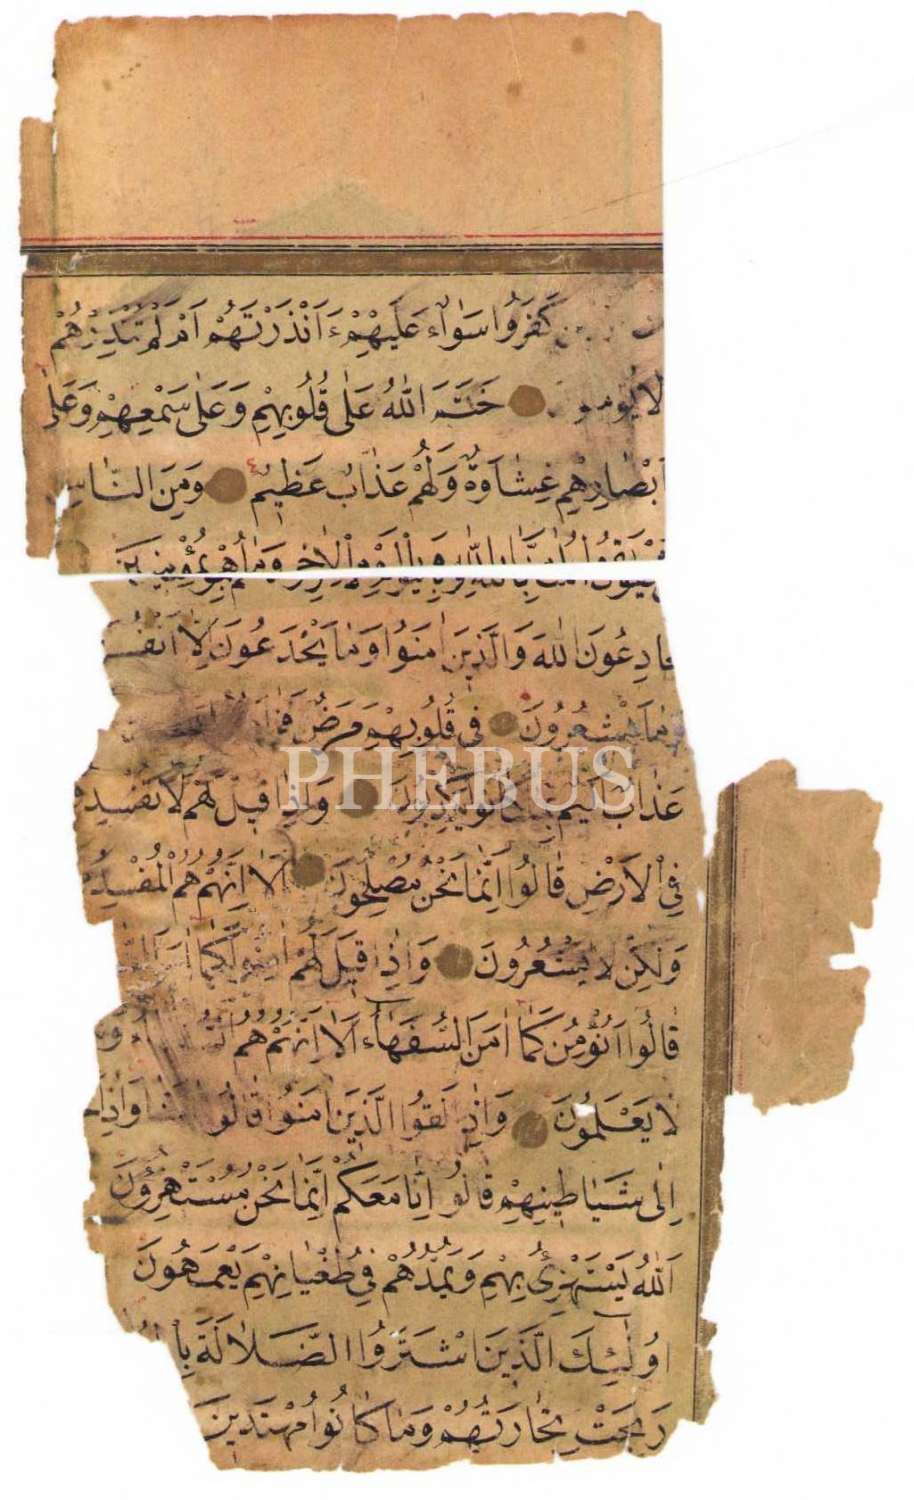 كَفَرُوا سَوَاءٌ عَلَيْهِمْ ءَاَنْذَرْتَهُمْ اَمْ لَمْ تُنْذِرْهُمْ
لَا يُؤْمِنُونَ خَتَمَ اللّٰهُ عَلٰى قُلُوبِهِمْ وَعَلٰى سَمْعِهِمْ وَعَلٰى
اَبْصَارِهِمْ غِشَاوَةٌ وَلَهُمْ عَذَابٌ عَظِيمٌ وَمِنَ النَّاسِ
يَقُولُ اٰمَنَّا بِاللّٰهِ وَبِالْيَوْمِ الْاٰخِرِ وَمَا هُمْ بِمُؤْمِنِينَ
يُخَادِعُونَ اللّٰهَ وَالَّذِينَ اٰمَنُوا وَمَا يَخْدَعُونَ اِلَّا اَنْفُسَ
وَمَا يَشْعُرُونَ فِي قُلُوبِهِمْ مَرَضٌ
عَذَابٌ اَلِيمٌ PHEBUS وَاِذَا قِيلَ لَهُمْ لَا تُفْسِدُوا
فِي الْاَرْضِ قَالُوا اِنَّمَا نَحْنُ مُصْلِحُونَ اَلَا اِنَّهُمْ هُمُ الْمُفْسِدُ
وَلٰكِنْ لَا يَشْعُرُونَ وَاِذَا قِيلَ لَهُمْ اٰمِنُوا كَمَا
قَالُوا اَنُؤْمِنُ كَمَا اٰمَنَ السُّفَهَاءُ اَلَا اِنَّهُمْ هُمُ
لَا يَعْلَمُونَ وَاِذَا لَقُوا الَّذِينَ اٰمَنُوا قَالُوا اٰمَنَّا وَاِذَا
اِلٰى شَيَاطِينِهِمْ قَالُوا اِنَّا مَعَكُمْ اِنَّمَا نَحْنُ مُسْتَهْزِؤُنَ
اَللّٰهُ يَسْتَهْزِئُ بِهِمْ وَيَمُدُّهُمْ فِي طُغْيَانِهِمْ يَعْمَهُونَ
اُولٰئِكَ الَّذِينَ اشْتَرَوُا الضَّلَالَةَ
رَبِحَتْ تِجَارَتُهُمْ وَمَا كَانُوا مُهْتَدِينَ